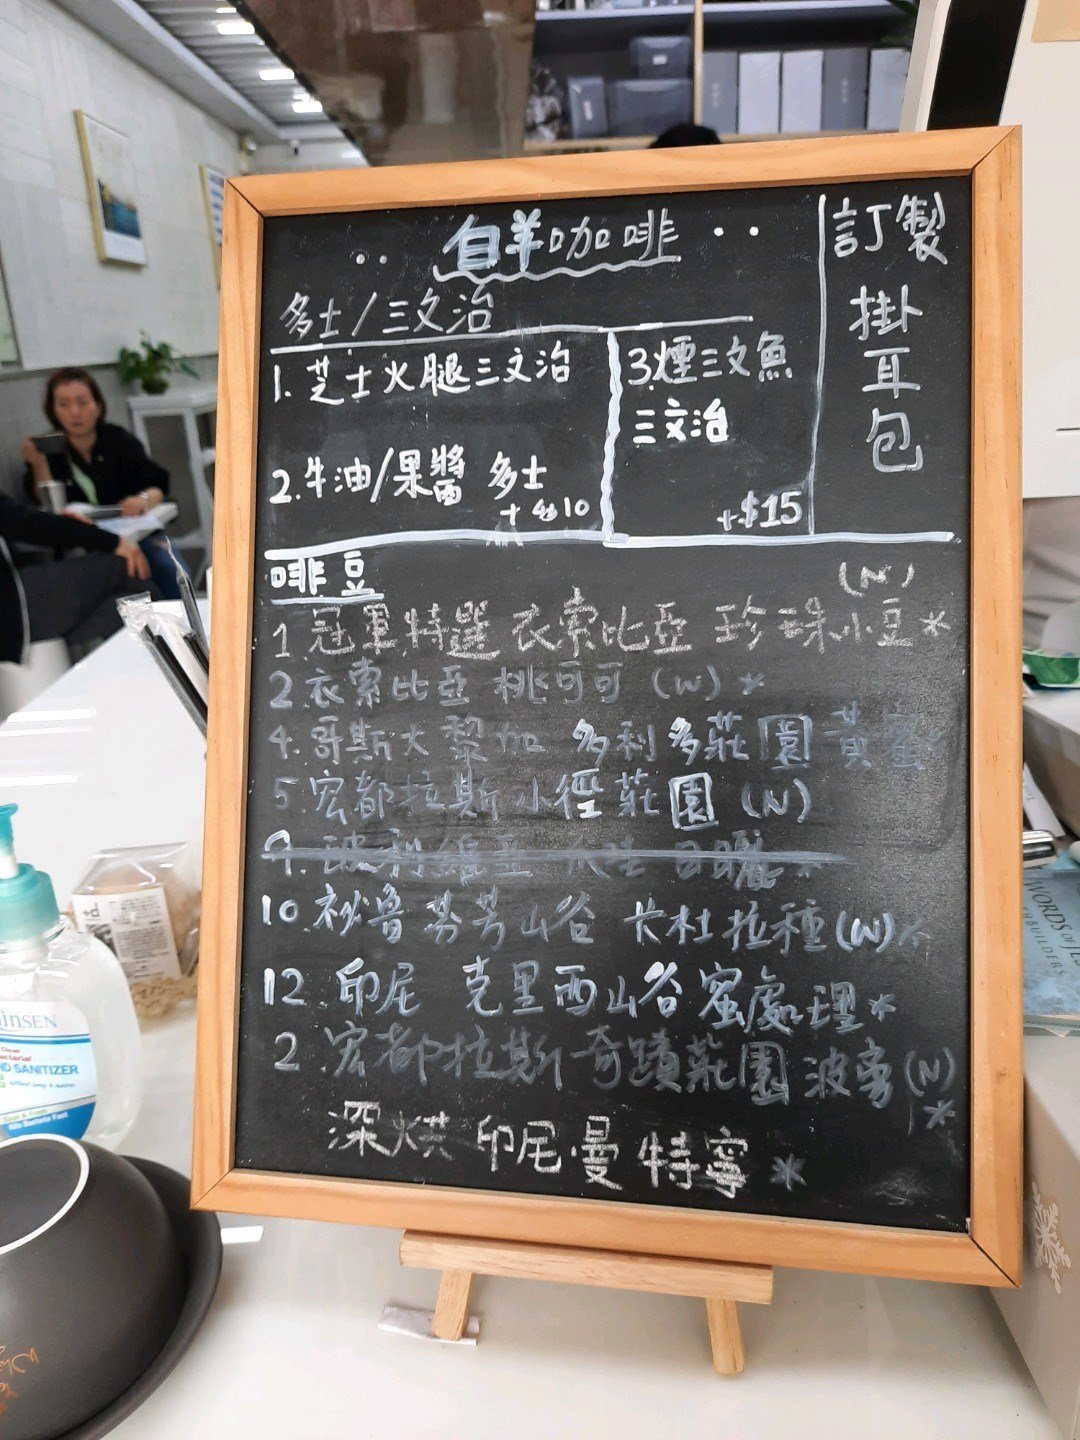 白羊咖啡
多士/三文治
1. 芝士火腿三文治
2. 牛油/果醬 多士
+$10
3. 煙三文魚
三文治
+$15
訂製
掛
耳
包
啡豆
(N)
1. 冠軍特選 衣索比亞 珍珠小豆*
2. 衣索比亞 桃可可 (W) *
4. 哥斯大黎加 多利多莊園 黃蜜*
5. 宏都拉斯小徑莊園 (N)
9. 玻利維亞 日曬 *
10. 祕魯 芬芳山谷 卡杜拉種(W)*
12. 印尼 克里西山谷蜜處理*
2. 宏都拉斯 奇蹟莊園 波旁(N)
*
深烘 印尼·曼特寧 *
SANITIZER
WORDS OF